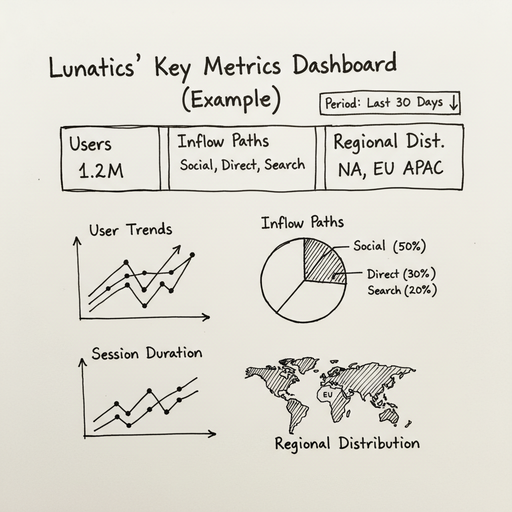 Lunatics' Key Metrics Dashboard
(Example)
Period: Last 30 Days ↓
Users
1.2M
Inflow Paths
Social, Direct, Search
Regional Dist.
NA, EU APAC
User Trends
Inflow Paths
Social (50%)
Direct (30%)
Search (20%)
Session Duration
EU
Regional Distribution